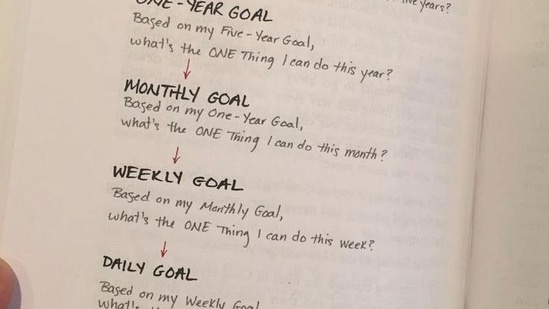 five years?
ONE-YEAR GOAL
Based on my Five-Year Goal,
what's the ONE Thing I can do this year?
MONTHLY GOAL
Based on my One-Year Goal,
what's the ONE Thing I can do this month?
WEEKLY GOAL
Based on my Monthly Goal,
what's the ONE Thing I can do this week?
DAILY GOAL
Based on my Weekly Goal
what's